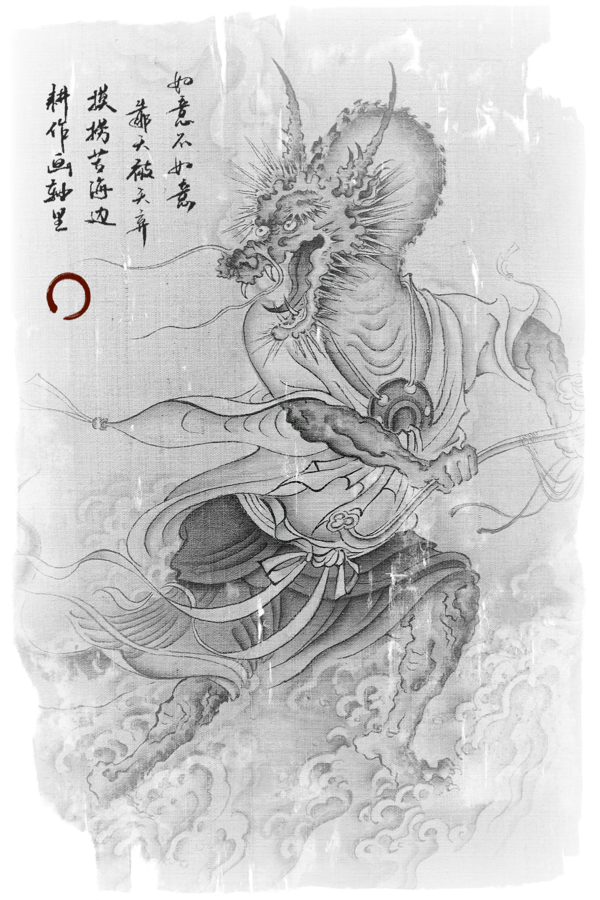 如意不如意
靠天被天弃
摸捞苦海边
耕作画轴里